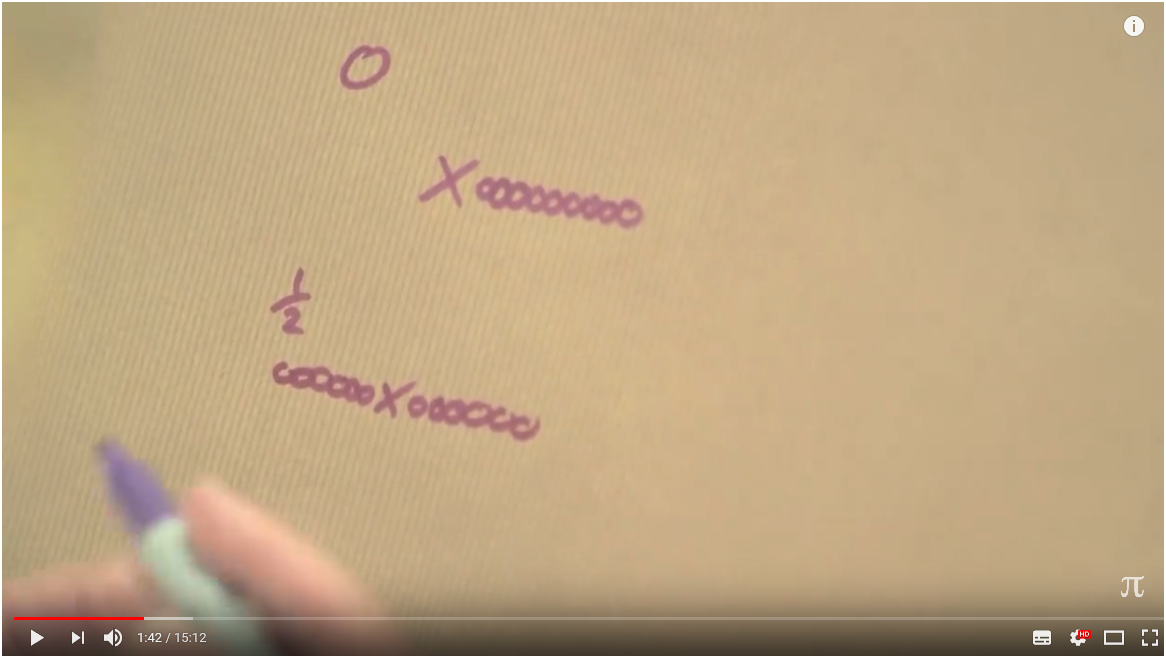 0
Xooooooooo
1/2
ooooooXoooooo
π
1:42 / 15:12
HD